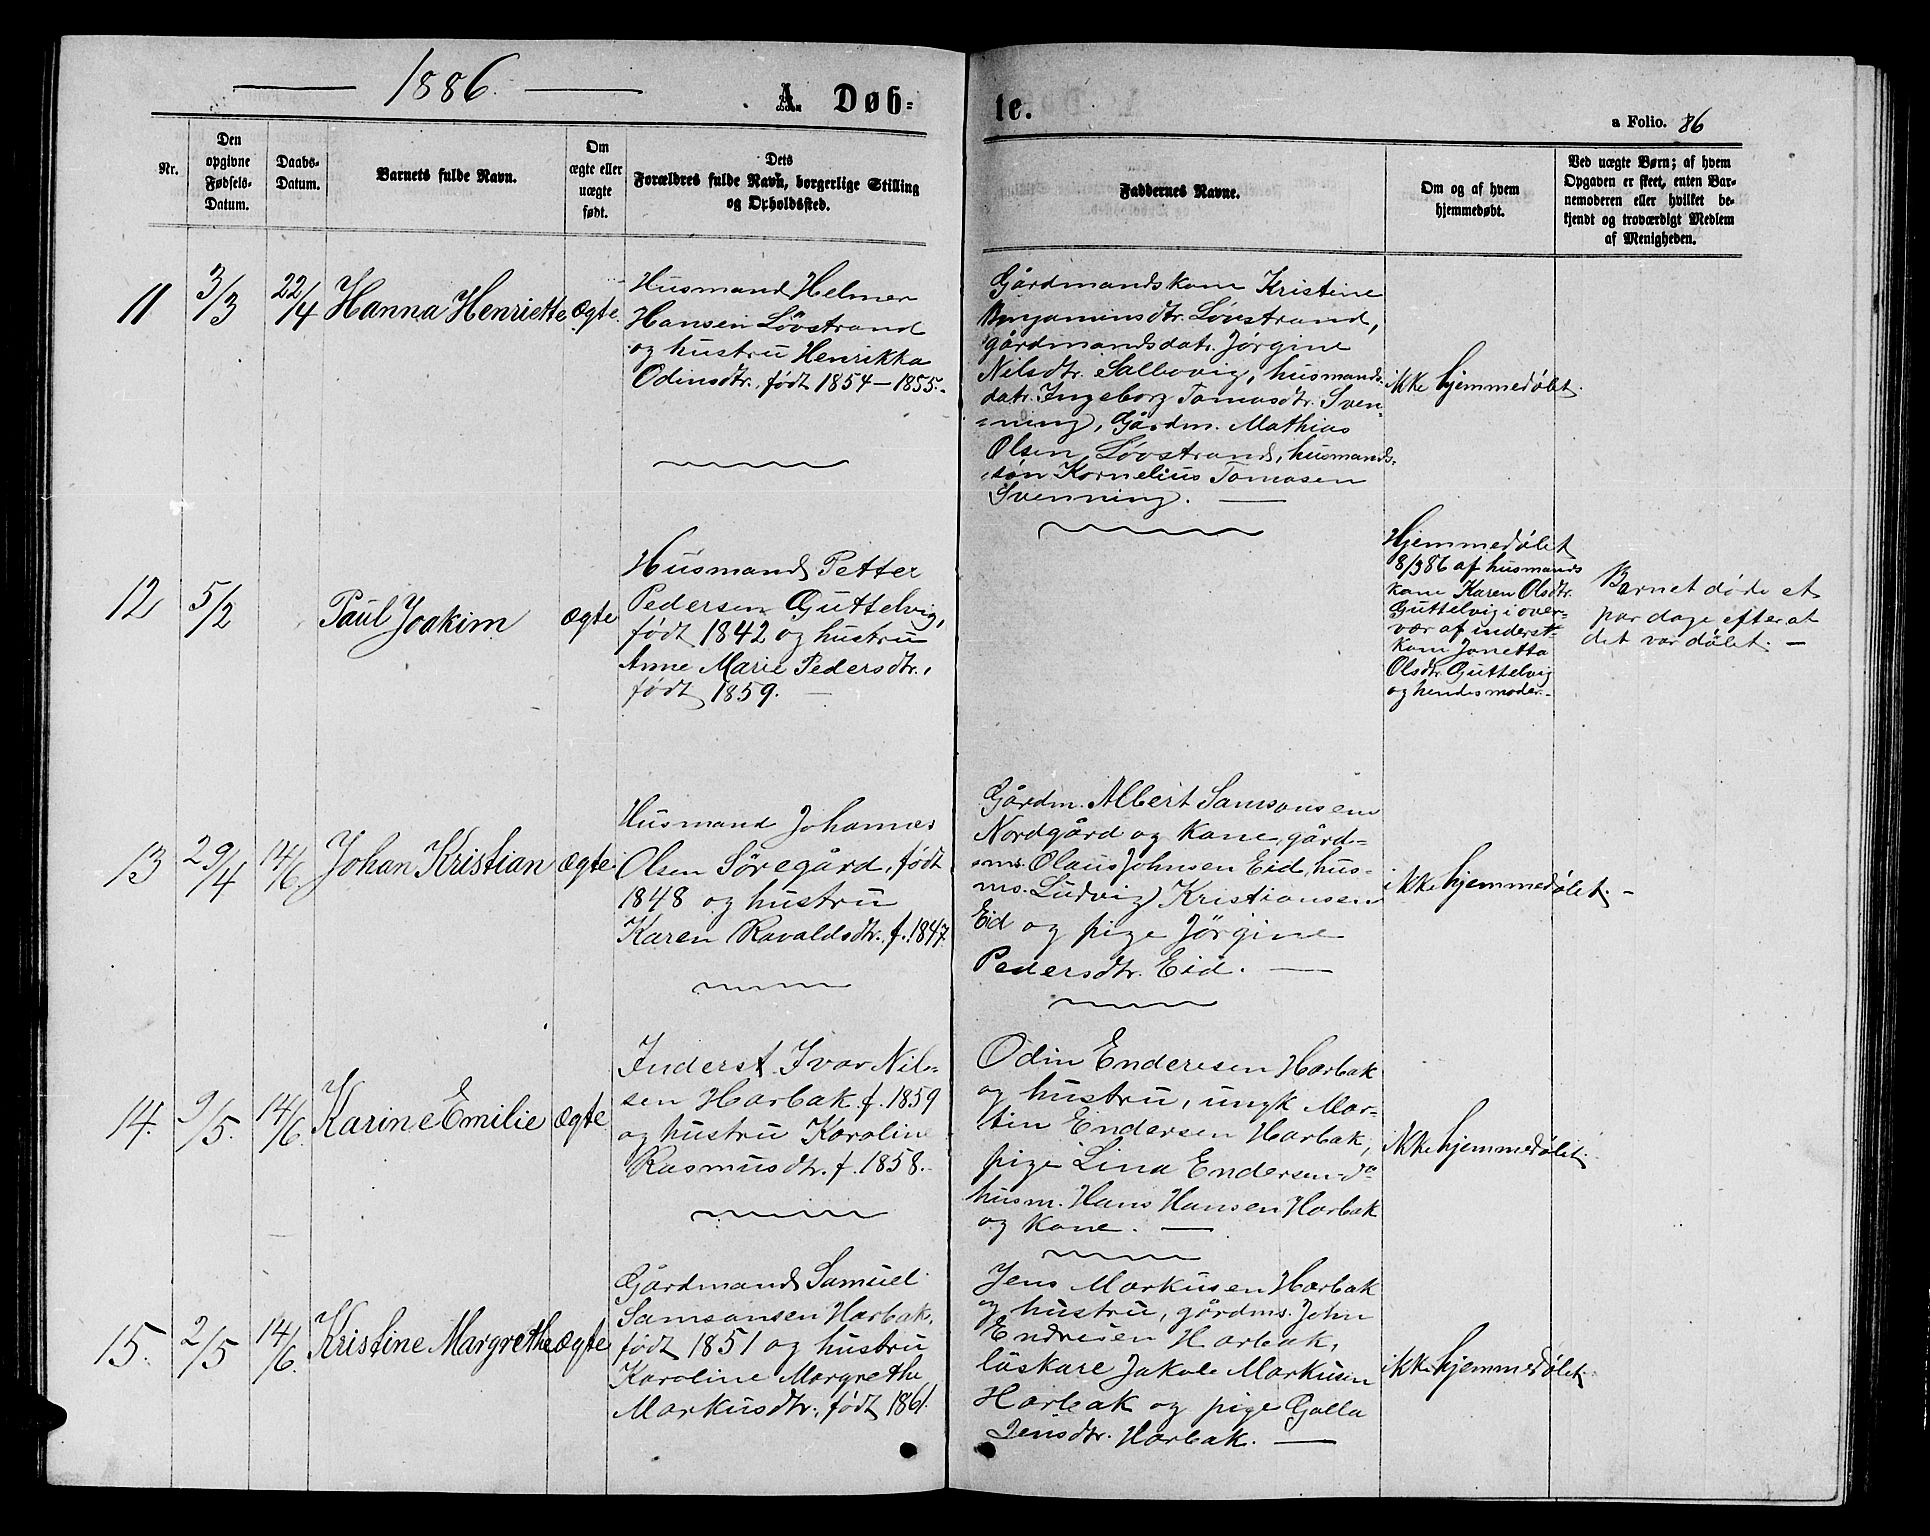 1886.
A. Døb-
te.
a Folio. 86
Nr.
Den
opgivne
Fødsels-
Datum.
Daabs-
Datum.
Barnets fulde Navn.
Om
ægte eller
uægte
født.
Dets
Forældres fulde Navn, borgerlige Stilling
og Opholdssted.
Faddernes Navne.
Om og af hvem
hjemmedøbt.
Ved uægte Børn; af hvem
Opgaven er skeet, enten Bar-
nemoderen eller hvilket be-
kjendt og troværdigt Medlem
af Menigheden.
11
3/3
22/4
Hanna Henriette
Ægte.
Husmand Helmer
Hansen Løvstrand
og hustru Henrikka
Odinsdtr. født 1854-1855.-
Gårdmandskone Kristine
Benjaminsdtr. Løvstrand,
gårdmandsdatr. Jørgine
Nilsdtr. Salbovig, husmands-
datr. Ingeborg Tomasdtr. Sven-
-ning, Gårdm. Mathias
Olsen Løvstrand, husmands-
-søn Kornelius Tomasen
Svenning. —
ikke hjemmedøbt.
12
5/2
Paul Joakim
Ægte
Husmand Petter
Pedersen Guttelvig,
født 1842 og hustru
Anne Marie Pedersdtr.,
født 1859. —
Hjemmedøbt
8/386 af husmands
kone Karen Olsdtr.
Guttelvig i over-
vær af inderst-
kone Janetta
Olsdtr. Guttelvig
og hendes moder.-
Barnet døde et
par dage efter at
det var døbt. —
13
29/4
14/6
Johan Kristian
Ægte.
Husmand Johannes
Olsen Søregård, født
1848 og hustru
Karen Ravaldsdtr. f. 1847.
Gårdm. Albert Samsonsen
Nordgård og kone, gård-
-ms. Olaus Johnsen Eid, hus-
ms. Ludvig Kristiansen
Eid og pige Jørgine
Pedersdtr. Eid. —
ikke hjemmedøbt. -
14.
9/5.
14/6.
Karine Emilie
Ægte
Inderst Ivar Nil-
sen Harbak f. 1859
og hustru Karoline
Rasmusdtr. f. 1858.
Odin Enderesen Harbak
og hustru, ungk Mar-
tin Endersen Harbak,
pige Lina Endersen-do
husm. Hans Hansen Harbak
og kone. —
ikke hjemmedøbt.
15.
2/5
14/6.
Kristine Margrethe
Ægte
Gårdmand Samuel
Samsonsen Harbak,
født 1851 og hustru
Karoline Margrethe
Markusdtr., født 1861.
Jens Markusen Harbak
og hustru, gårdms. John
Endresen Harbak,
løskare Jakob Markusen
Harbak og pige Golla
Jensdtr. Harbak. —
ikke hjemmedøbt.